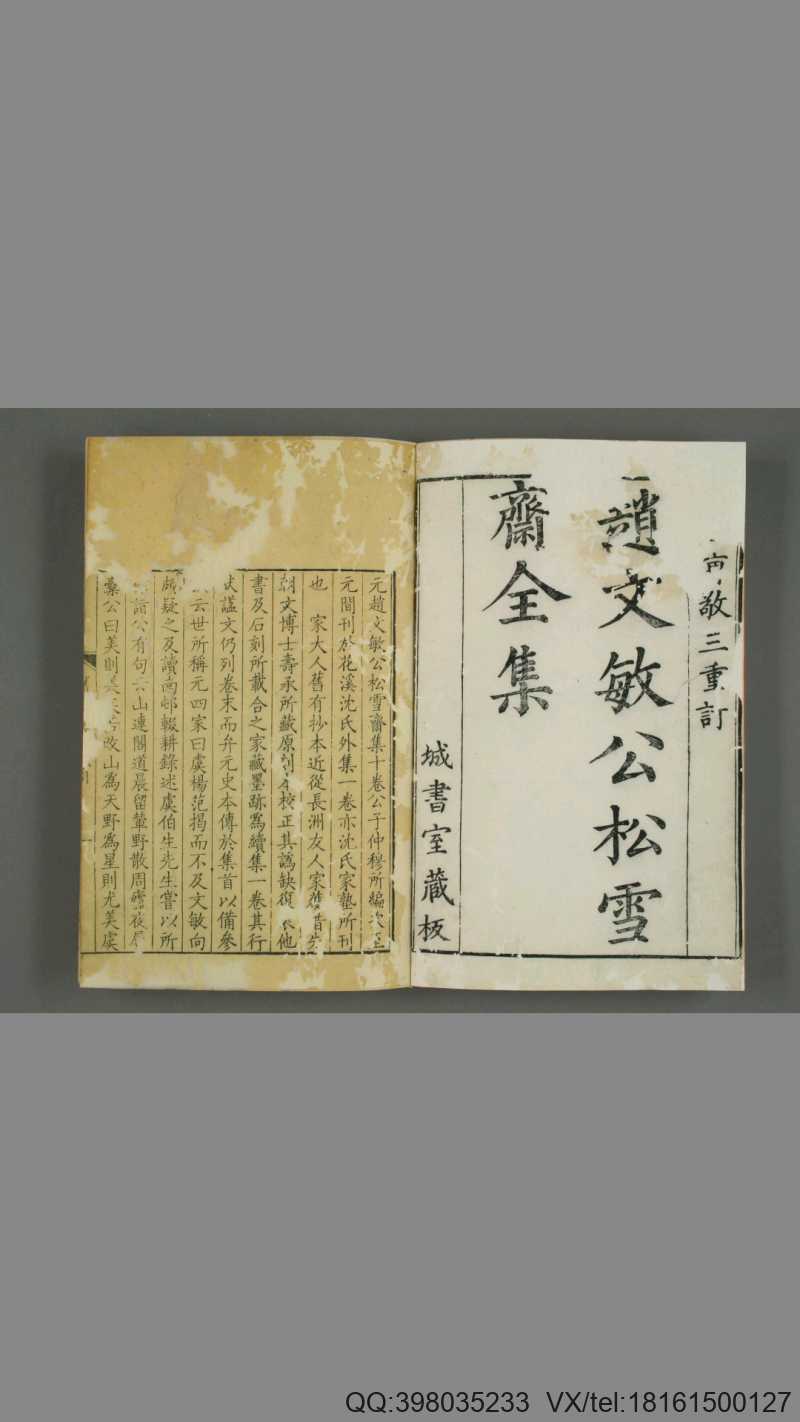 敬三重訂
趙文敏公松雪
齋全集
城書室藏板
元趙文敏公松雪齋集十卷公子仲穆所編次至
元間刊於花溪沈氏外集一卷亦沈氏家塾所刊
也　家大人舊有抄本近從長洲友人家
文博士壽承所藏原刻本校正其譌缺復他
書及石刻所載合之家藏墨跡爲續集一卷其行
狀諡文仍列卷末而弁元史本傳於集首以備參
云世所稱元四家曰虞楊范揭而不及文敏向
疑之及讀南邨輟耕錄述虞伯生先生嘗以所
詩公有句云山連閣道晨留輦野散周廬夜
藁公曰美則美改山爲天野爲星則尤美虞
QQ:398035233 VX/tel:18161500127